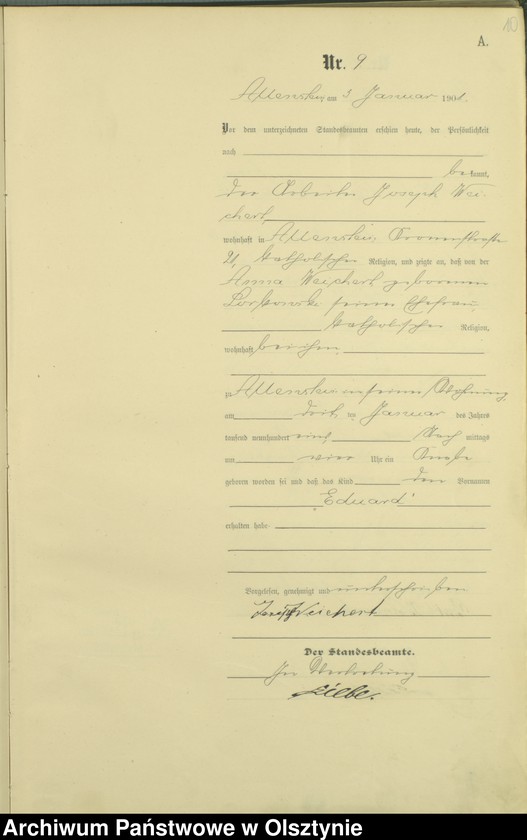 10
A.
Nr. 9
Allenstein, am 3 Januar 1901.
Vor dem unterzeichneten Standesbeamten erschien heute, der Persönlichkeit
nach
bekannt,
der Arbeiter Joseph Wei-
chert
wohnhaft in Allenstein, Kronenstraße
21, katholischer Religion, und zeigte an, daß von der
Anna Weichert geborenen
seiner Ehefrau,
katholischer Religion,
wohnhaft bei ihm
zu Allenstein in seiner Wohnung
am dritten Januar des Jahres
tausend neunhundert eins, Nachmittags
um vier Uhr ein Knabe
geboren worden sei und daß das Kind den Vornamen
„Eduard“
erhalten habe
Vorgelesen, genehmigt und unterschrieben
Josef Weichert
Der Standesbeamte.
In Vertretung
Archiwum Państwowe w Olsztynie